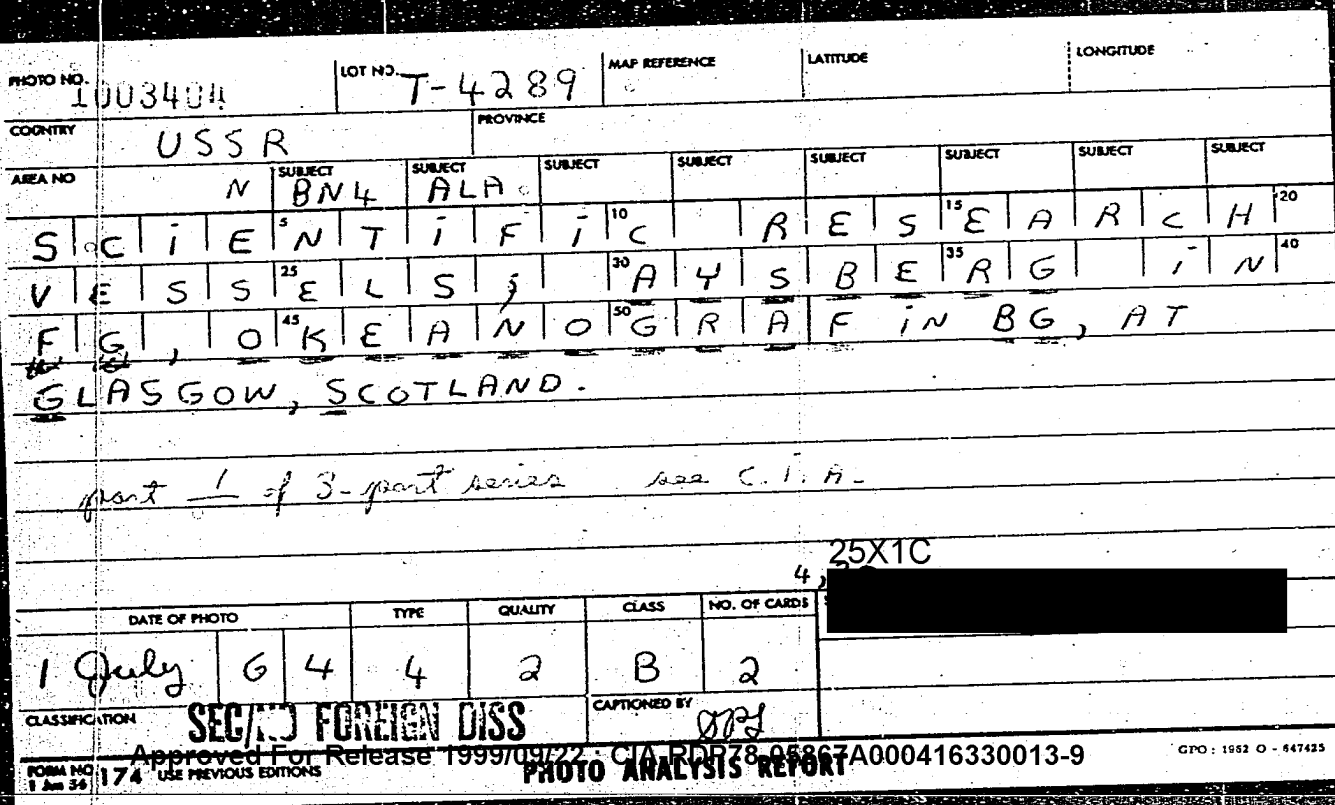 PHOTO NO. 1003404 LOT NO. T-4289 MAP REFERENCE LATITUDE LONGITUDE
COUNTRY USSR PROVINCE
AREA NO N SUBJECT BN4 SUBJECT ALA SUBJECT SUBJECT SUBJECT SUBJECT SUBJECT SUBJECT
SCiE 5 NTiFi 10 C RES 15 EARCH 20
VESS 25 ELS; 30 AYSBE 35 RG iN 40
FG, O 45 KEANO 50 GRAF iN BG, AT
GLASGOW, SCOTLAND.
part 1 of 3-part series see C.I.A.
25X1C
4,
DATE OF PHOTO TYPE QUALITY CLASS NO. OF CARDS
1 July 64 4 2 B 2
CLASSIFICATION SEC/NO FOREIGN DISS CAPTIONED BY
Approved For Release 1999/09/22 : CIA-RDP78-05867A000416330013-9
FORM NO 174 USE PREVIOUS EDITIONS PHOTO ANALYSIS REPORT GPO : 1952 O - 647425
1 Jun 54